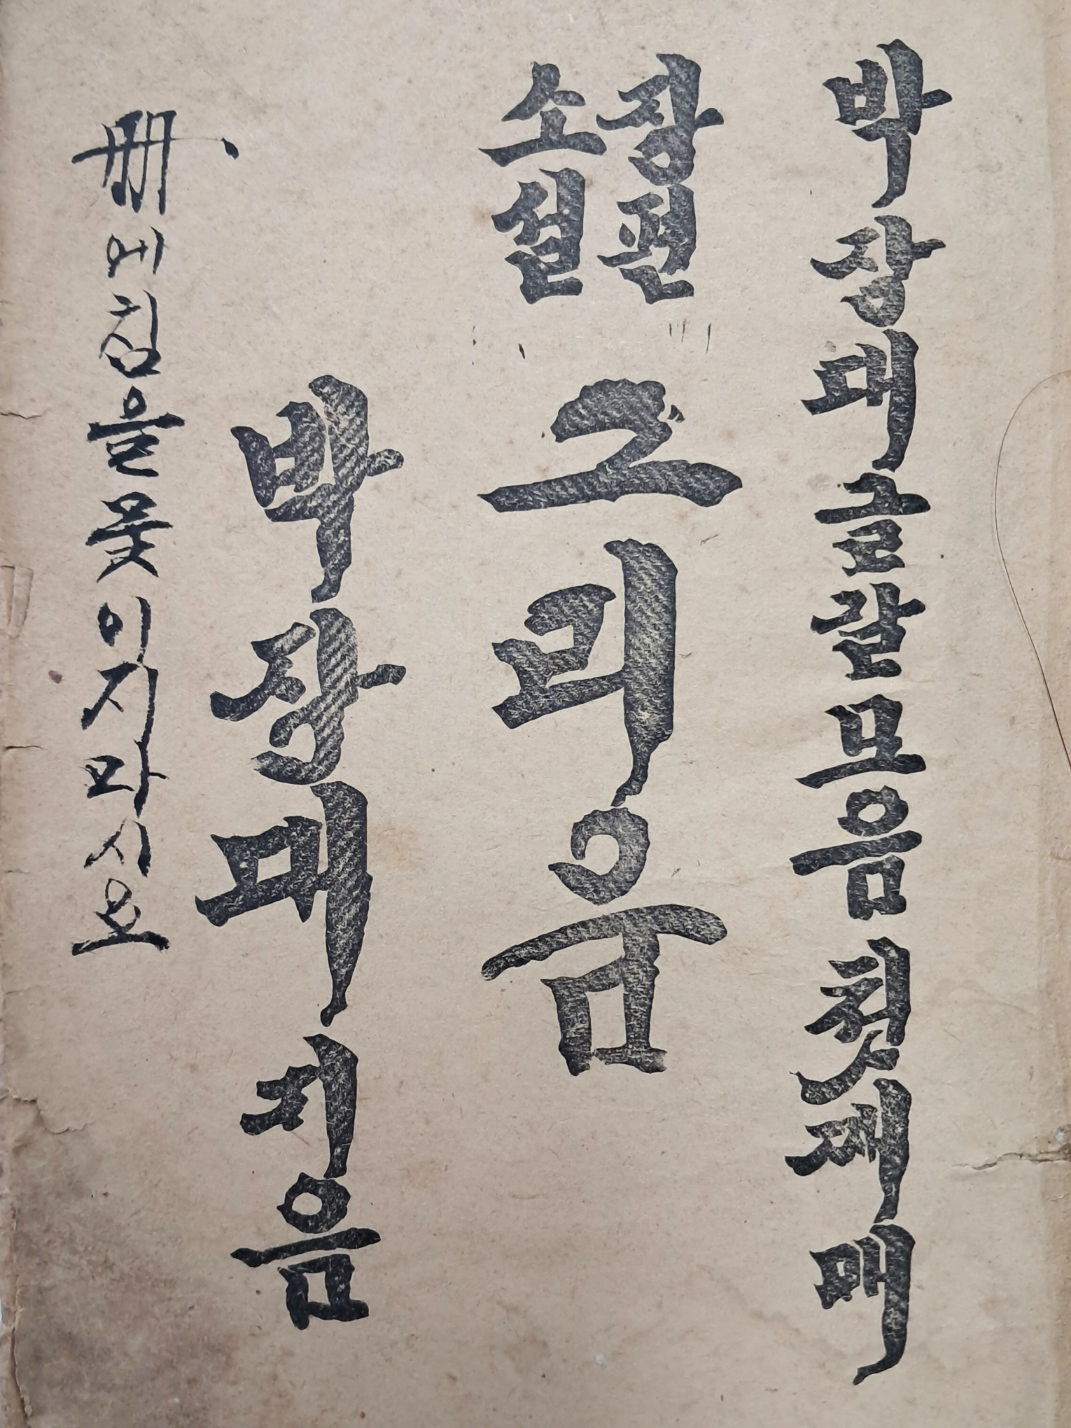 박장대글갈모음 첫재매
장편
소설
그리움
박장대 지음
冊에침을뭇이지마시오